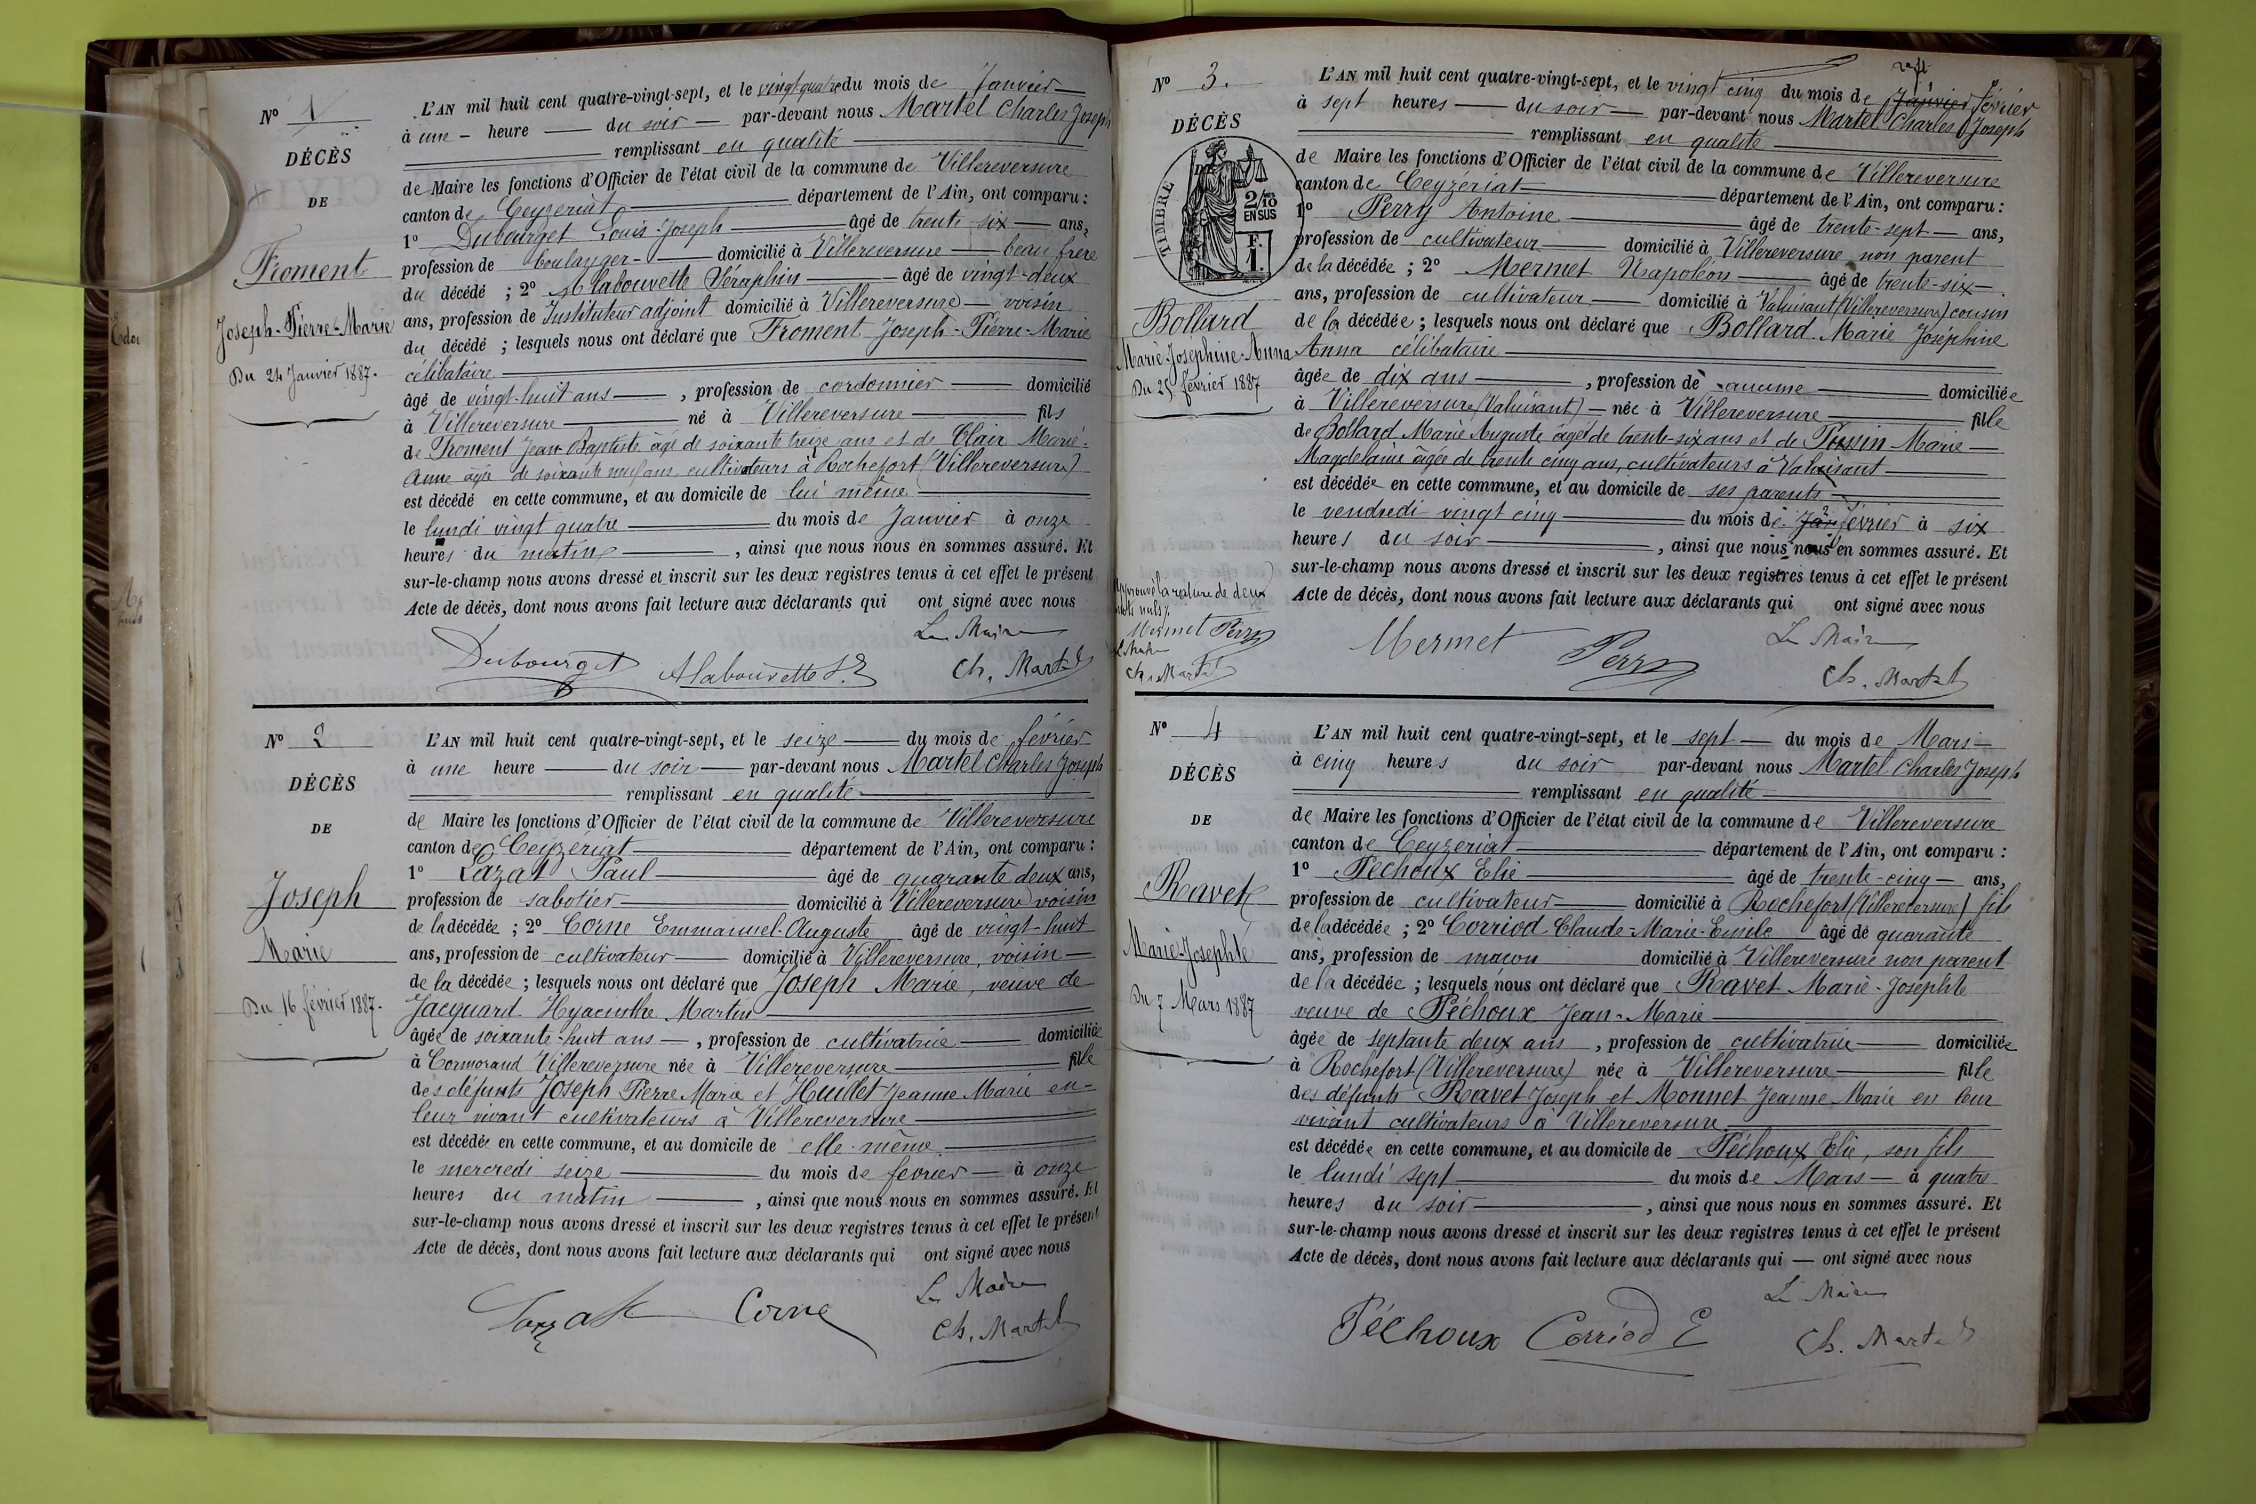 N° 1
DÉCÈS
DE
Froment
Joseph-Pierre-Marie
Du 24 Janvier 1887.
L'AN mil huit cent quatre-vingt-sept, et le vingt quatre du mois de Janvier
à une heure du soir par-devant nous Martel Charles Joseph
remplissant en qualité
de Maire les fonctions d'Officier de l'état civil de la commune de Villereversure
canton de Ceyzériat département de l'Ain, ont comparu :
1° Dubourget Louis-Joseph âgé de trente-six ans,
profession de boulanger domicilié à Villereversure beau frère
du décédé ; 2° Alabouvette Séraphin âgé de vingt-deux
ans, profession de Instituteur adjoint domicilié à Villereversure voisin
du décédé ; lesquels nous ont déclaré que Froment Joseph-Pierre-Marie
célibataire
âgé de vingt-huit ans , profession de cordonnier domicilié
à Villereversure né à Villereversure fils
de Froment Jean Baptiste âgé de soixante treize ans et de Clair Marie-
Anne âgée de soixante neuf ans, cultivateurs à Rochefort (Villereversure)
est décédé en cette commune, et au domicile de lui même
le lundi vingt quatre du mois de Janvier à onze
heures du matin , ainsi que nous nous en sommes assuré. Et
sur-le-champ nous avons dressé et inscrit sur les deux registres tenus à cet effet le présent
Acte de décès, dont nous avons fait lecture aux déclarants qui ont signé avec nous
Le Maire
Dubourget Alabouvette S. Ch. Martel
N° 2
DÉCÈS
DE
Joseph
Marie
Du 16 février 1887.
L'AN mil huit cent quatre-vingt-sept, et le seize du mois de février
à une heure du soir par-devant nous Martel Charles Joseph
remplissant en qualité
de Maire les fonctions d'Officier de l'état civil de la commune de Villereversure
canton de Ceyzériat département de l'Ain, ont comparu :
1° Lazat Paul âgé de quarante deux ans,
profession de sabotier domicilié à Villereversure voisin
de la décédée ; 2° Corne Emmanuel-Auguste âgé de vingt-huit
ans, profession de cultivateur domicilié à Villereversure, voisin
de la décédée ; lesquels nous ont déclaré que Joseph Marie, veuve de
Jacquard Hyacinthe Martin
âgée de soixante-huit ans , profession de cultivatrice domiciliée
à Cormorand Villereversure née à Villereversure fille
des défunts Joseph Pierre Marie et Huillet Jeanne Marie en
leur vivant cultivateurs à Villereversure
est décédée en cette commune, et au domicile de elle-même
le mercredi seize du mois de fevrier à onze
heures du matin , ainsi que nous nous en sommes assuré. Et
sur-le-champ nous avons dressé et inscrit sur les deux registres tenus à cet effet le présent
Acte de décès, dont nous avons fait lecture aux déclarants qui ont signé avec nous
Le Maire
Corne Ch. Martel
N° 3.
DÉCÈS
DE
TIMBRE
2/10 EN SUS
F. 1.
Bollard
Marie-Joséphine-Anna
Du 25 février 1887
L'AN mil huit cent quatre-vingt-sept, et le vingt cinq du mois de Janvier février
à sept heures du soir par-devant nous Martel Charles Joseph
remplissant en qualité
de Maire les fonctions d'Officier de l'état civil de la commune de Villereversure
canton de Ceyzériat département de l'Ain, ont comparu :
1° Perry Antoine âgé de trente-sept ans,
profession de cultivateur domicilié à Villereversure non parent
de la décédée ; 2° Mermet Napoléon âgé de trente-six
ans, profession de cultivateur domicilié à Valuisant (Villereversure) cousin
de la décédée ; lesquels nous ont déclaré que Bollard Marie Joséphine
Anna célibataire
âgée de dix ans , profession de aucune domiciliée
à Villereversure (Valuisant) née à Villereversure fille
de Bollard Marie Auguste âgé de trente-six ans et de Marie
Magdelaine âgée de trente cinq ans, cultivateurs à Valuisant
est décédée en cette commune, et au domicile de ses parents
le vendredi vingt cinq du mois de Jan février à six
heures du soir , ainsi que nous nous en sommes assuré. Et
sur-le-champ nous avons dressé et inscrit sur les deux registres tenus à cet effet le présent
Acte de décès, dont nous avons fait lecture aux déclarants qui ont signé avec nous
Approuvé la rature de deux
mots nuls
Mermet Perry
Ch. Martel
Le Maire
Mermet Perry Ch. Martel
N° 4
DÉCÈS
DE
Ravet
Marie-Josephte
Du 7 Mars 1887
L'AN mil huit cent quatre-vingt-sept, et le sept du mois de Mars
à cinq heures du soir par-devant nous Martel Charles Joseph
remplissant en qualité
de Maire les fonctions d'Officier de l'état civil de la commune de Villereversure
canton de Ceyzériat département de l'Ain, ont comparu :
1° Péchoux Elie âgé de trente-cinq ans,
profession de cultivateur domicilié à Rochefort (Villereversure) fils
de la décédée ; 2° Corriod Claude-Marie-Emile âgé de quarante
ans, profession de maçon domicilié à Villereversure non parent
de la décédée ; lesquels nous ont déclaré que Ravet Marie-Josephte
veuve de Péchoux Jean-Marie
âgée de septante deux ans , profession de cultivatrice domiciliée
à Rochefort (Villereversure) née à Villereversure fille
des défunts Ravet Joseph et Monnet Jeanne-Marie en leur
vivant cultivateurs à Villereversure
est décédée en cette commune, et au domicile de Péchoux Elie, son fils
le lundi sept du mois de Mars à quatre
heures du soir , ainsi que nous nous en sommes assuré. Et
sur-le-champ nous avons dressé et inscrit sur les deux registres tenus à cet effet le présent
Acte de décès, dont nous avons fait lecture aux déclarants qui — ont signé avec nous
Le Maire
Péchoux Corriod E Ch. Martel